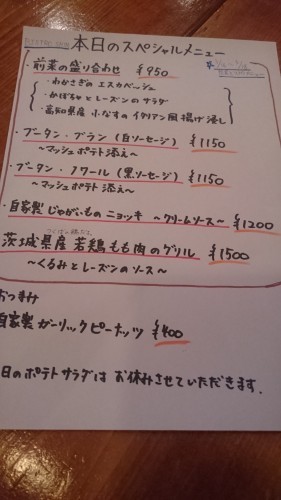 本日のスペシャルメニュー
・前菜の盛り合わせ ¥950
・わかさぎのエスカベッシュ
・かぼちゃとレーズンのサラダ
・高知県産 小なすのイタリアン風揚げ浸し
・ブータン・ブラン (白ソーセージ) ¥1150
〜マッシュポテト添え〜
・ブータン・ノワール (黒ソーセージ) ¥1150
〜マッシュポテト添え〜
・自家製 じゃがいものニョッキ 〜クリームソース〜 ¥1200
茨城県産 若鶏もも肉のグリル ¥1500
〜くるみとレーズンのソース〜
おつまみ
自家製 ガーリックピーナッツ ¥400
日のポテトサラダは お休みさせていただきます.